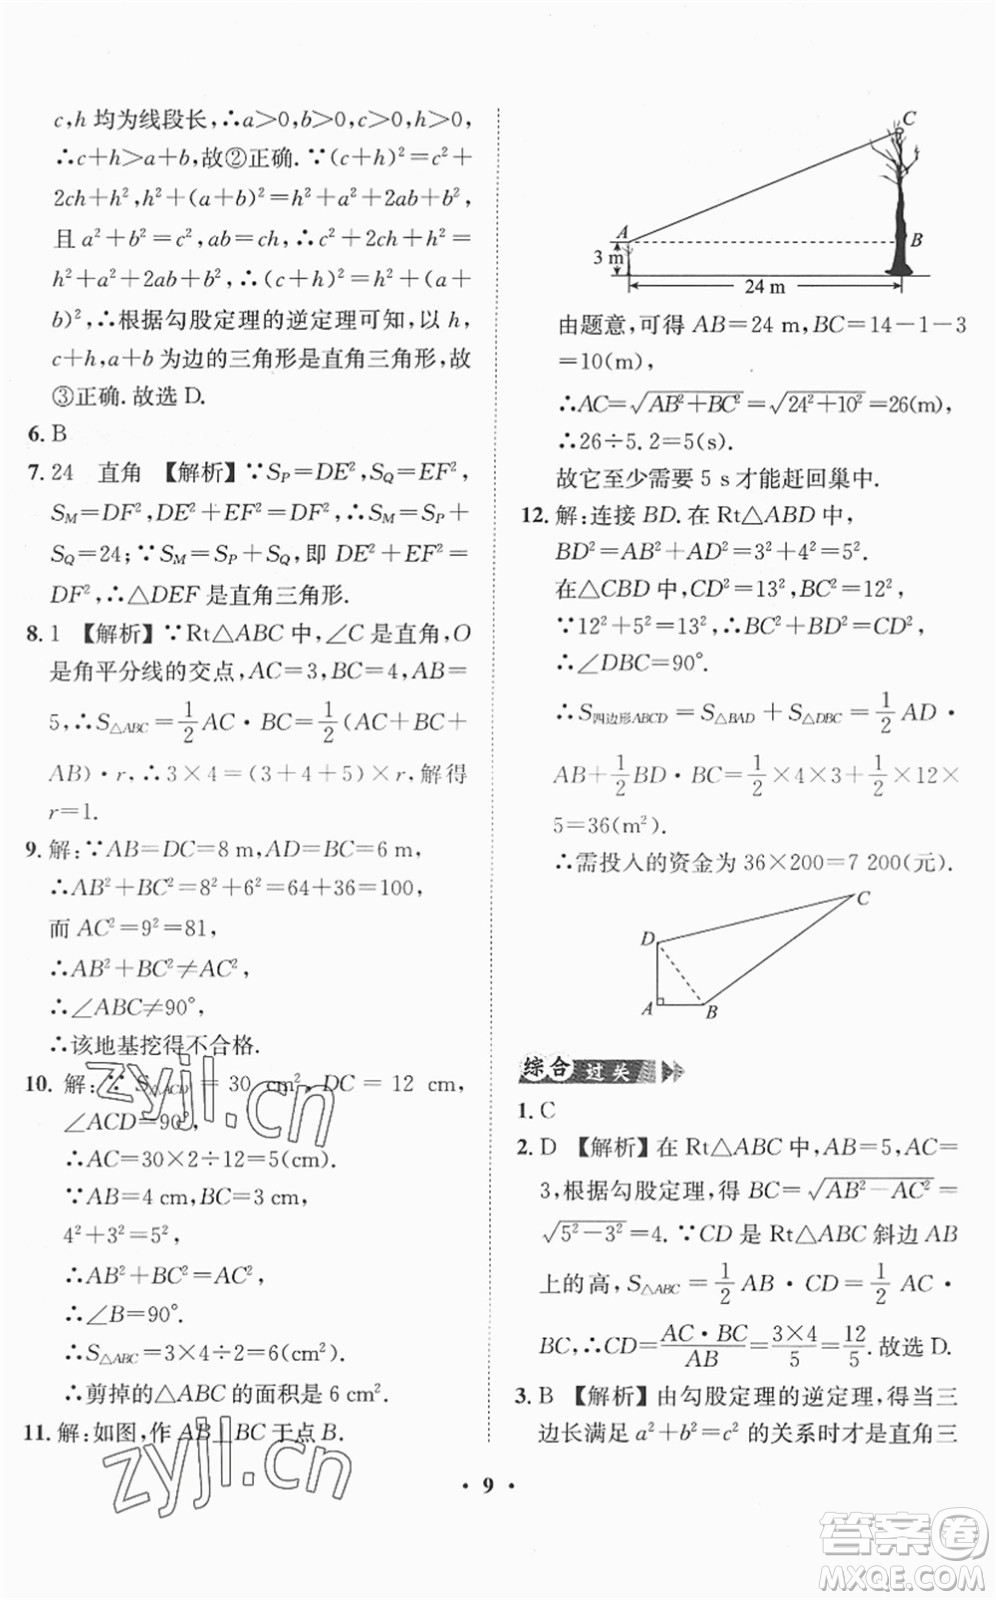 c,h均为线段长,∴a>0,b>0,c>0,h>0,
∴c+h>a+b,故②正确.∵(c+h)²=c²+
2ch+h²,h²+(a+b)²=h²+a²+2ab+b²,
且 a²+b²=c²,ab=ch,∴c²+2ch+h²=
h²+a²+2ab+b²,∴(c+h)²=h²+(a+
b)²,∴根据勾股定理的逆定理可知,以 h,
c+h,a+b 为边的三角形是直角三角形,故
③正确.故选 D.
6. B
7. 24 直角 【解析】∵S_P=DE²,S_Q=EF²,
S_M=DF²,DE²+EF²=DF²,∴S_M=S_P+
S_Q=24;∵S_M=S_P+S_Q,即 DE²+EF²=
DF²,∴△DEF 是直角三角形.
8. 1 【解析】∵Rt△ABC 中,∠C 是直角,O
是角平分线的交点,AC=3,BC=4,AB=
5,∴S△ABC=1/2 AC·BC=1/2(AC+BC+
AB)·r,∴3×4=(3+4+5)×r,解得
r=1.
9. 解:∵AB=DC=8 m,AD=BC=6 m,
∴AB²+BC²=8²+6²=64+36=100,
而 AC²=9²=81,
∴AB²+BC²≠AC²,
∴∠ABC≠90°,
∴该地基挖得不合格.
10. 解:∵S△ACD=30 cm²,DC=12 cm,
∠ACD=90°,
∴AC=30×2÷12=5(cm).
∵AB=4 cm,BC=3 cm,
4²+3²=5²,
∴AB²+BC²=AC²,
∴∠B=90°.
∴S△ABC=3×4÷2=6(cm²).
∴剪掉的△ABC 的面积是 6 cm².
11. 解:如图,作 AB⊥BC 于点 B.
C
A
B
3 m
24 m
由题意,可得 AB=24 m,BC=14-1-3
=10(m),
∴AC=√(AB²+BC²)=√(24²+10²)=26(m),
∴26÷5.2=5(s).
故它至少需要 5 s 才能赶回巢中.
12. 解:连接 BD.在 Rt△ABD 中,
BD²=AB²+AD²=3²+4²=5².
在△CBD 中,CD²=13²,BC²=12²,
∵12²+5²=13²,∴BC²+BD²=CD²,
∴∠DBC=90°.
∴S四边形ABCD=S△BAD+S△DBC=1/2 AD·
AB+1/2 BD·BC=1/2×4×3+1/2×12×
5=36(m²).
∴需投入的资金为 36×200=7 200(元).
C
D
A
B
综合过关
1. C
2. D 【解析】在 Rt△ABC 中,AB=5,AC=
3,根据勾股定理,得 BC=√(AB²-AC²)=
√(5²-3²)=4.∵CD 是 Rt△ABC 斜边 AB
上的高,S△ABC=1/2 AB·CD=1/2 AC·
BC,∴CD=AC·BC/AB=3×4/5=12/5.故选 D.
3. B 【解析】由勾股定理的逆定理,得当三
边长满足 a²+b²=c² 的关系时才是直角三
· 9 ·
zyjl.cn
zyjl.cn
答案卷
MXQE.COM